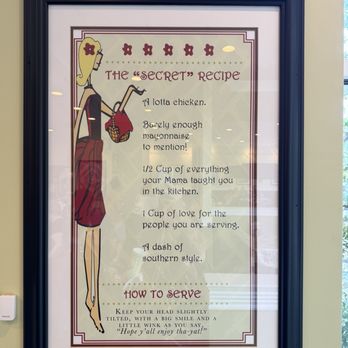 THE "SECRET" RECIPE
A lotta chicken.
Barely enough
mayonnaise
to mention!
1/2 Cup of everything
your Mama taught you
in the kitchen.
1 Cup of love for the
people you are serving.
A dash of
southern style.
HOW TO SERVE
KEEP YOUR HEAD SLIGHTLY
TILTED, WITH A BIG SMILE AND A
LITTLE WINK AS YOU SAY,
"Hope y'all enjoy tha-yat!"